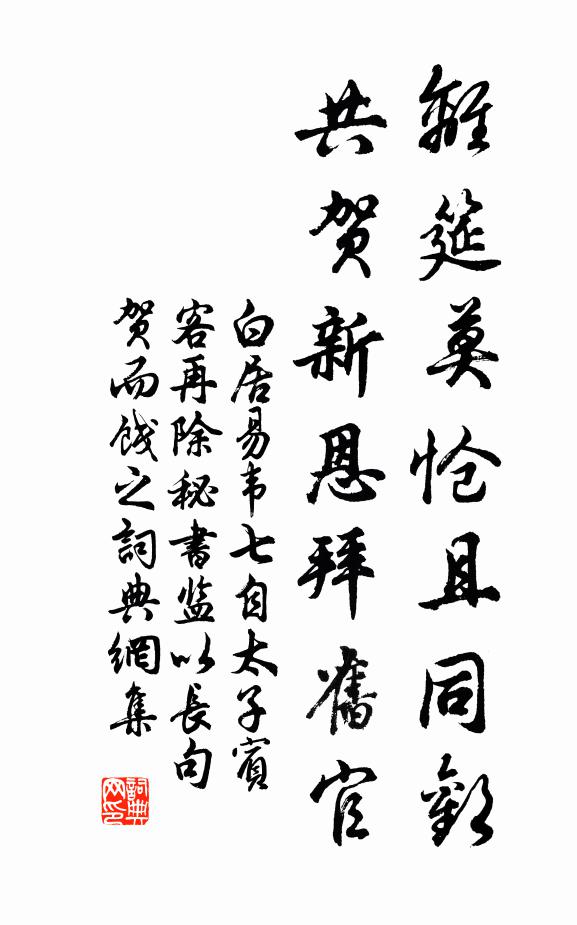 離筵莫怆且同歡
共贺新恩拜舊官
白居易韦七自太子賓
客再除秘書监以長句
贺而饯之詞典網集
詞典
网印